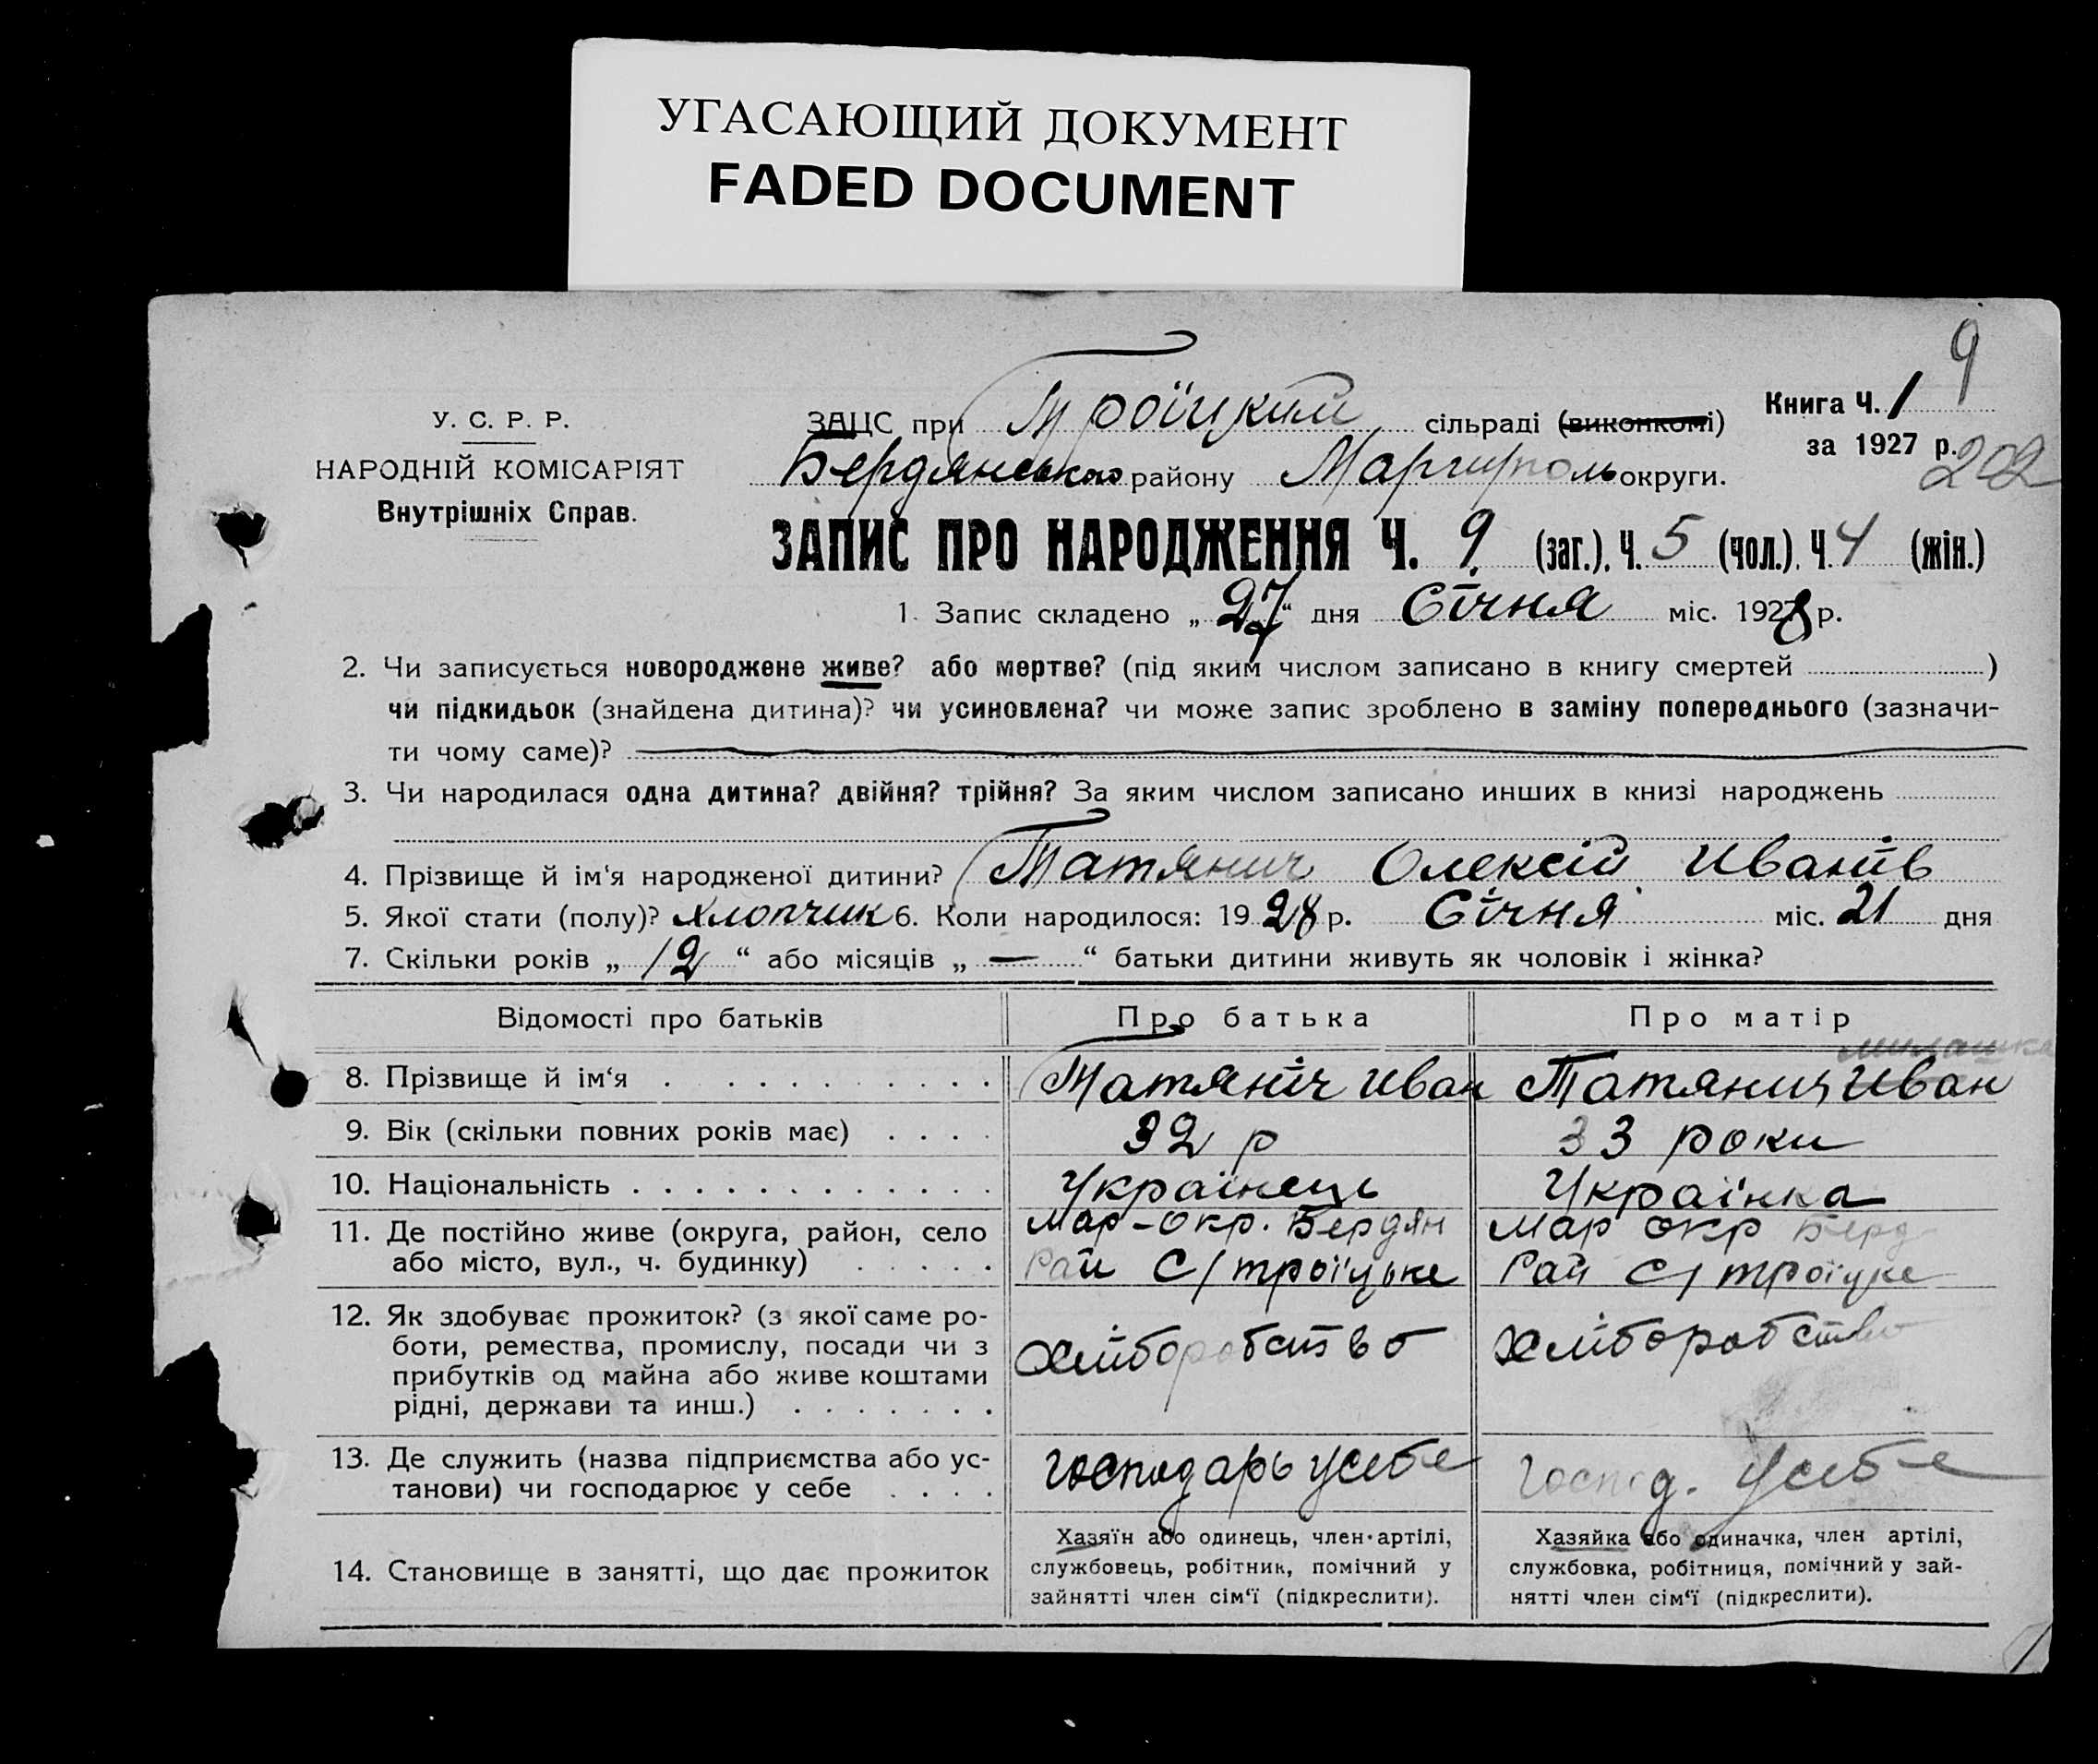 УГАСАЮЩИЙ ДОКУМЕНТ
FADED DOCUMENT
9
У. С. Р. Р.
НАРОДНІЙ КОМІСАРІЯТ
Внутрішніх Справ.
ЗАЦС при Троїцкий сільраді (виконкомі)
Бердянського району Маргиуполь округи.
Книга Ч. 1
за 1927 р.
202
ЗАПИС ПРО НАРОДЖЕННЯ Ч. 9 (заг.). Ч. 5 (чол.). Ч. 4 (жін.)
1. Запис складено „ 27 “ дня Січня міс. 1928 р.
2. Чи записується новороджене живе? або мертве? (під яким числом записано в книгу смертей )
чи підкидьок (знайдена дитина)? чи усиновлена? чи може запис зроблено в заміну попереднього (зазначи-
ти чому саме)?
3. Чи народилася одна дитина? двійня? трійня? За яким числом записано инших в книзі народжень
4. Прізвище й ім‘я народженої дитини? Татянич Олексій Иванів
5. Якої стати (полу)? хлопчик 6. Коли народилося: 19 28 р. Січня міс. 21 дня
7. Скільки років „ 12 “ або місяців „ — “ батьки дитини живуть як чоловік і жінка?
Відомості про батьків
Про батька
Про матір
8. Прізвище й ім‘я
Татяніч Иван
Татянич Иван
9. Вік (скільки повних років має)
32 р
33 роки
10. Національність
Українець
Українка
11. Де постійно живе (округа, район, село
або місто, вул., ч. будинку)
Мар-окр. Бердян
Рай С/ троїцьке
Мар окр Берд
Рай С/ троїцке
12. Як здобуває прожиток? (з якої саме ро-
боти, ремества, промислу, посади чи з
прибутків од майна або живе коштами
рідні, держави та инш.)
Хліборобство
Хліборобство
13. Де служить (назва підприємства або ус-
танови) чи господарює у себе
господарь усебе
Господ. усебе
14. Становище в занятті, що дає прожиток
Хазяїн або одинець, член артілі,
службовець, робітник, помічний у
зайнятті член сім‘ї (підкреслити).
Хазяйка або одиначка, член артілі,
службовка, робітниця, помічний у зай-
нятті член сім‘ї (підкреслити).